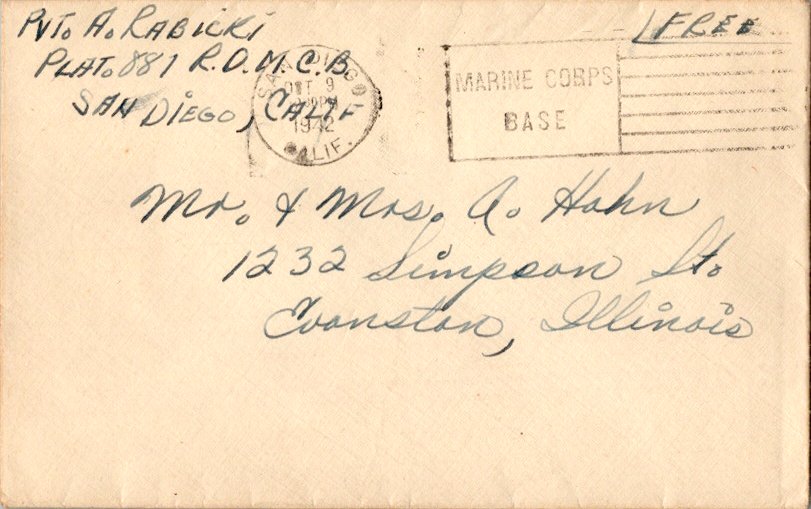 Pvt. A. Rabicki
Plat. 881 R.D.M.C.B
San Diego, Calif
FREE
SAN DIEGO
OCT 9
PM
1942
CALIF.
MARINE CORPS
BASE
Mr. & Mrs. A. Hahn
1232 Simpson St.
Evanston, Illinois